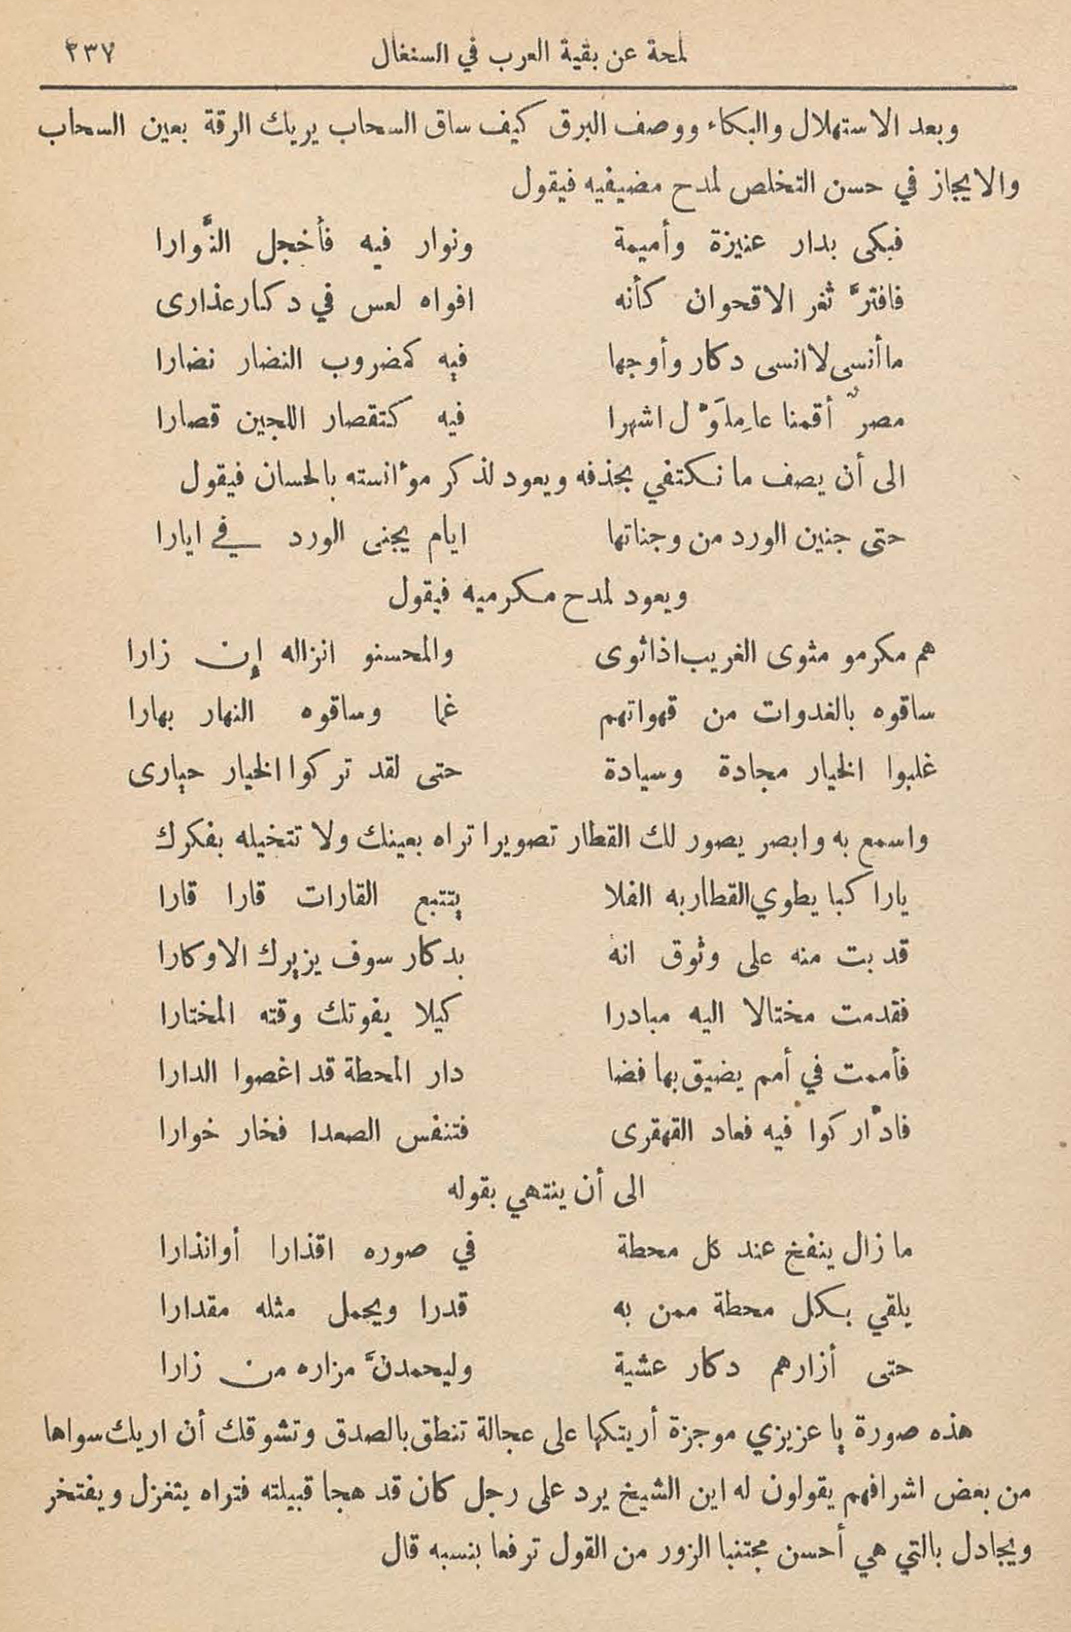 لمحة عن بقية العرب في السنغال ٢٣٧
وبعد الاستهلال والبكاء ووصف البرق كيف ساق السحاب يريك الرقة بعين السحاب
والايجاز في حسن التخلص لمدح مضيفيه فيقول
فبكى بدار عنيزة وأميمة ونوار فيه فأخجل النَّوارا
فافترَّ ثغر الاقحوان كأنه افواه لعس في دكار عذارى
ما أنسى لا انسى دكار وأوجها فيه كمضروب النضار نضارا
مصر أقمنا عامِلَوْل اشهرا فيه كتقصار اللجين قصارا
الى أن يصف ما نكتفي بحذفه ويعود لذكر مؤانسته بالحسان فيقول
حتى جنين الورد من وجناتها ايام يجنى الورد في ايارا
ويعود لمدح مكرميه فيقول
هم مكرمو مثوى الغريب اذا ثوى والمحسنو انزاله إن زارا
ساقوه بالغدوات من قهواتهم غما وساقوه النهار بهارا
غلبوا الخيار مجادة وسيادة حتى لقد تركوا الخيار حيارى
واسمع به وابصر يصور لك القطار تصويرا تراه بعينك ولا تتخيله بفكرك
يارا كبا يطوي القطار به الفلا يتتبع القارات قارا قارا
قد بت منه على وثوق انه بدكار سوف يزيرك الاوكارا
فقدمت مختالا اليه مبادرا كيلا يفوتك وقته المختارا
فأممت في أمم يضيق بها فضا دار المحطة قد اغصوا الدارا
فادّاركوا فيه فعاد القهقرى فتنفس الصعدا فخار خوارا
الى أن ينتهي بقوله
ما زال ينفخ عند كل محطة في صوره اقذارا أوانذارا
يلقي بكل محطة ممن به قدرا ويحمل مثله مقدارا
حتى أزارهم دكار عشية وليحمدنَّ مزاره من زارا
هذه صورة يا عزيزي موجزة أريتكها على عجالة تنطق بالصدق وتشوقك أن اريك سواها
من بعض اشرافهم يقولون له ابن الشيخ يرد على رجل كان قد هجا قبيلته فتراه يتغزل ويفتخر
ويجادل بالتي هي أحسن مجتنبا الزور من القول ترفعا بنسبه قال